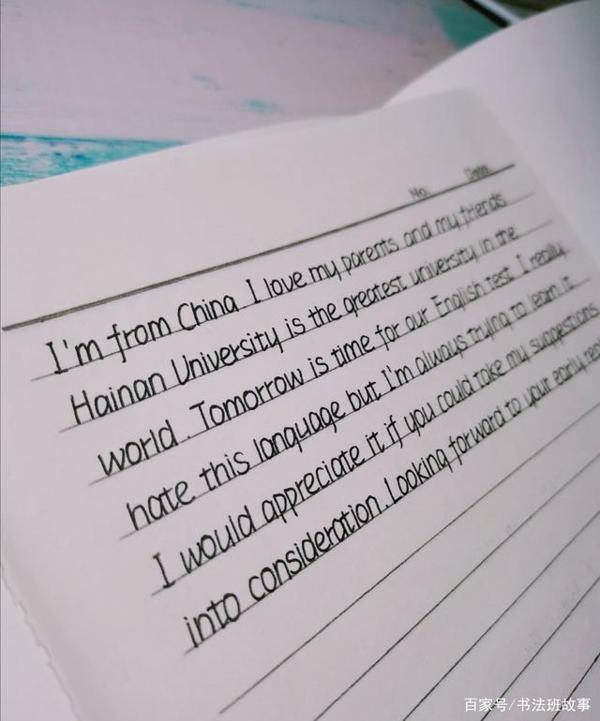 No. Date
I'm from China I love my parents and my friends
Hainan University is the greatest university in the
world . Tomorrow is time for our English test I really
hate this language but I'm always trying to learn it
I would appreciate it if you could take my suggestions
into consideration . Looking forward to your early
百家号/书法班故事